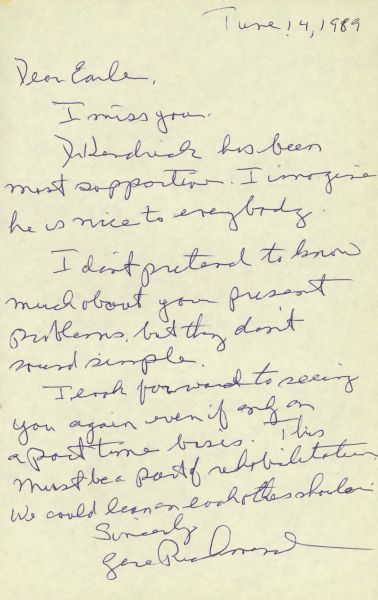 June 14, 1989
Dear Earle,
I miss you.
Dr Kendrick has been
most supportive. I imagine
he is nice to everybody.
I don't pretend to know
much about your present
problems, but they don't
sound simple.
I look forward to seeing
you again even if only on
a part time basis. This
must be a part of rehabilitation.
We could lean on each others shoulder
Sincerely
Gene Richmond